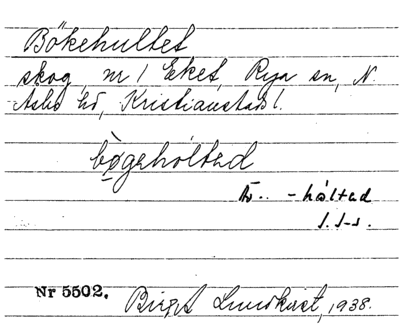 Bökehultet
skog, nr 1 Eket, Rya sn, N.
Åsbo hd, Kristianstads l.
bø̀gehòltəd
-håltəd
Nr 5502. Birgit Lundkvist, 1938.